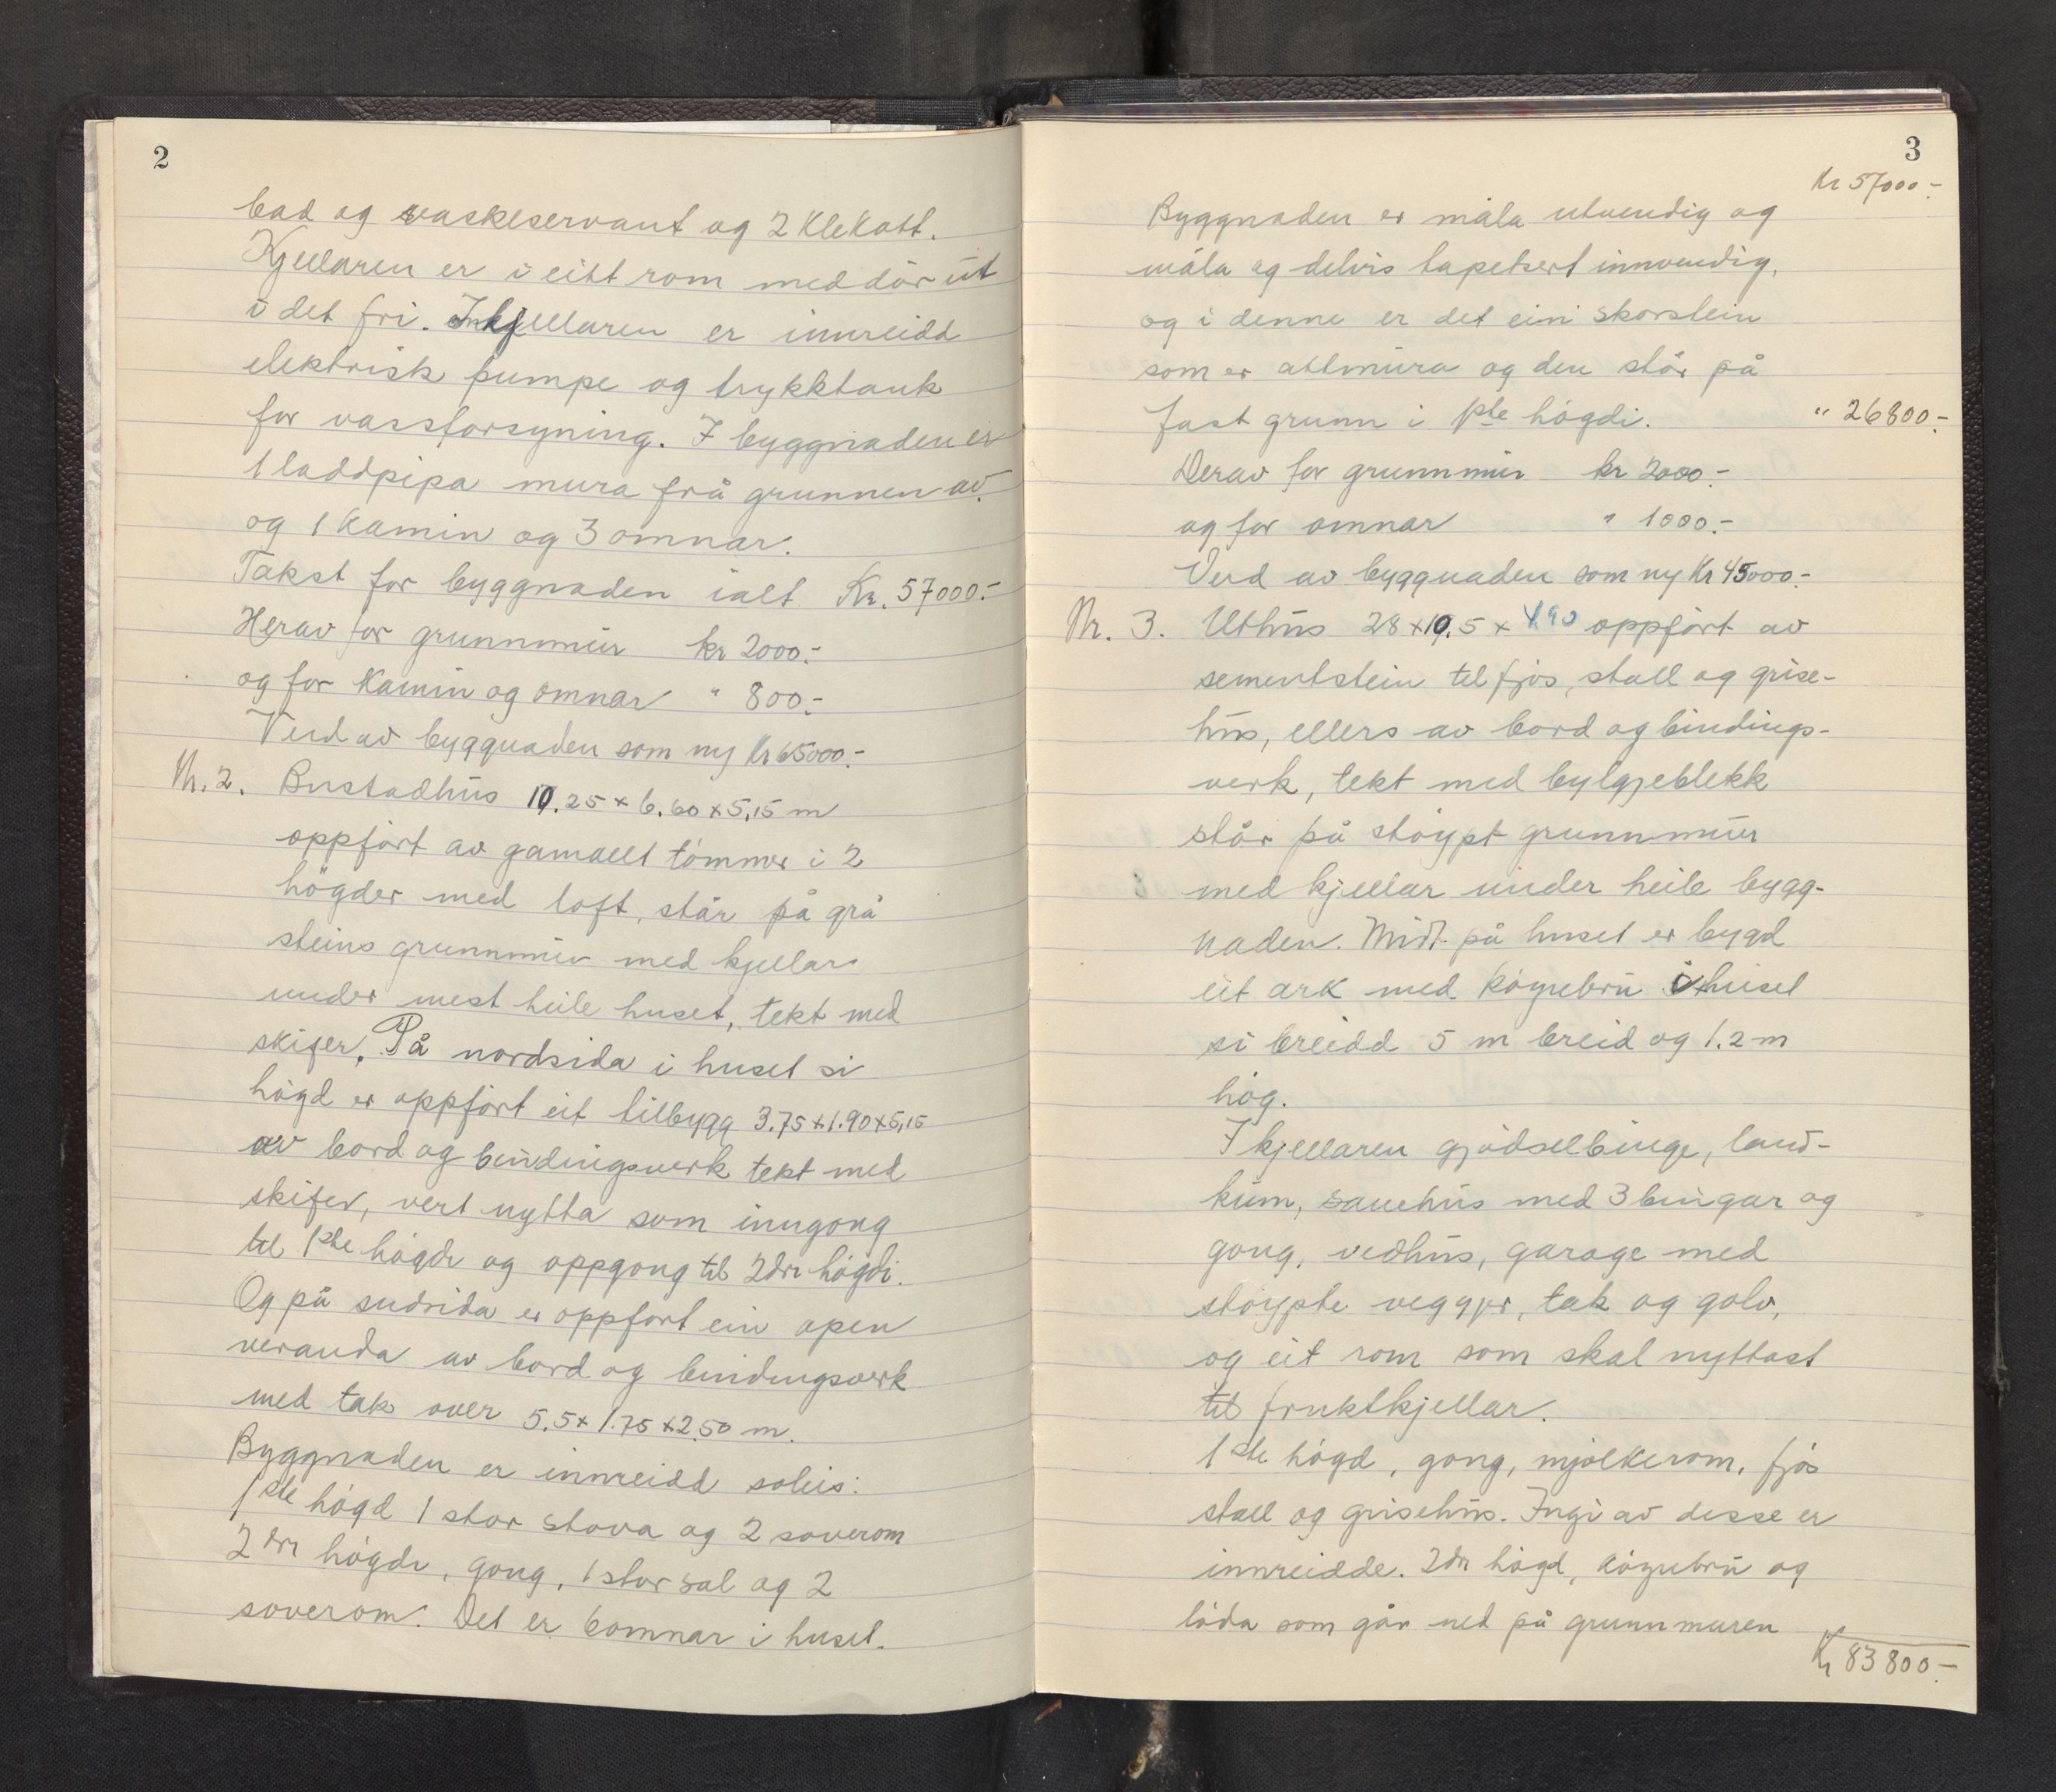 2
bad og vaskeservant og 2 klekott.
Kjellaren er i eitt rom med dör út
i det fri. I kjellaren er innreidd
elektrisk pumpe og trykktank
for vassforsyning. I byggnaden er
1 laddpipa mura frå grunnen av.
og 1 Kamin og 3 omnar.
Takst for byggnaden ialt Kr. 57000.-
Herav for grunnmúr kr 2000.-
og for Kamin og omnar " 800.-
Verd av byggnaden som ny Kr 65000.-
Nr. 2. Bustadhús 10.25 x 6.60 x 5,15 m
oppfört av gamallt tömmer i 2
högder med loft, står på grå
steins grunnmúr med kjellar
under mest heile huset, tekt med
skifer. På nordsida i huset si
högd er oppfört eit tilbygg 3.75 x 1.90 x 5,15
av bord og bindingsverk tekt med
skifer, vert nytta som inngong
til 1ste högdi og oppgong til 2dre högdi.
Og på sudsida er oppfört ein open
veranda av bord og bindingsverk
med tak over 5.5 x 1.75 x 2.50 m.
Byggnaden er innreidd soleis:
1ste högd 1 stor stova og 2 soverom
2dre högdi, gong, 1 stor sal og 2
soverom. Det er 6 omnar i huset.
3
Kr 57000.-
Byggnaden er måla utvendig og
måla og delvis tapetsert innvendig,
og i denne er det ein skorstein
som er attmúra og den står på
fast grunn i 1ste högdi. " 26800.-
Derav for grunnmúr kr 2000.-
og for omnar " 1000.-
Verd av byggnaden som ny Kr 45000.-
Nr. 3. Uthús 28 x 10.5 x 4,90 oppfört av
sementstein til fjós, stall og grise-
hús, ellers av bord og bindings-
verk, tekt med bylgjeblekk
står på stöypt grunnmúr
med kjellar under heile bygg-
naden. Midt på huset er bygd
eit ark med köyrebrú i huset
si breidd 5 m breid og 1.2 m
hög.
I kjellaren gjödselbinge, land-
kum, sauehús med 3 bingar og
gong, vedhús, garage med
stöypte veggjer, tak og golv,
og eit rom som skal nyttast
til fruktkjellar.
1ste högd, gong, mjölkerom, fjös
stall og grisehús. Ingi av desse er
innreidde. 2dre högd, köyrebrú og
löda som går ned på grunnmuren
Kr 83800.-